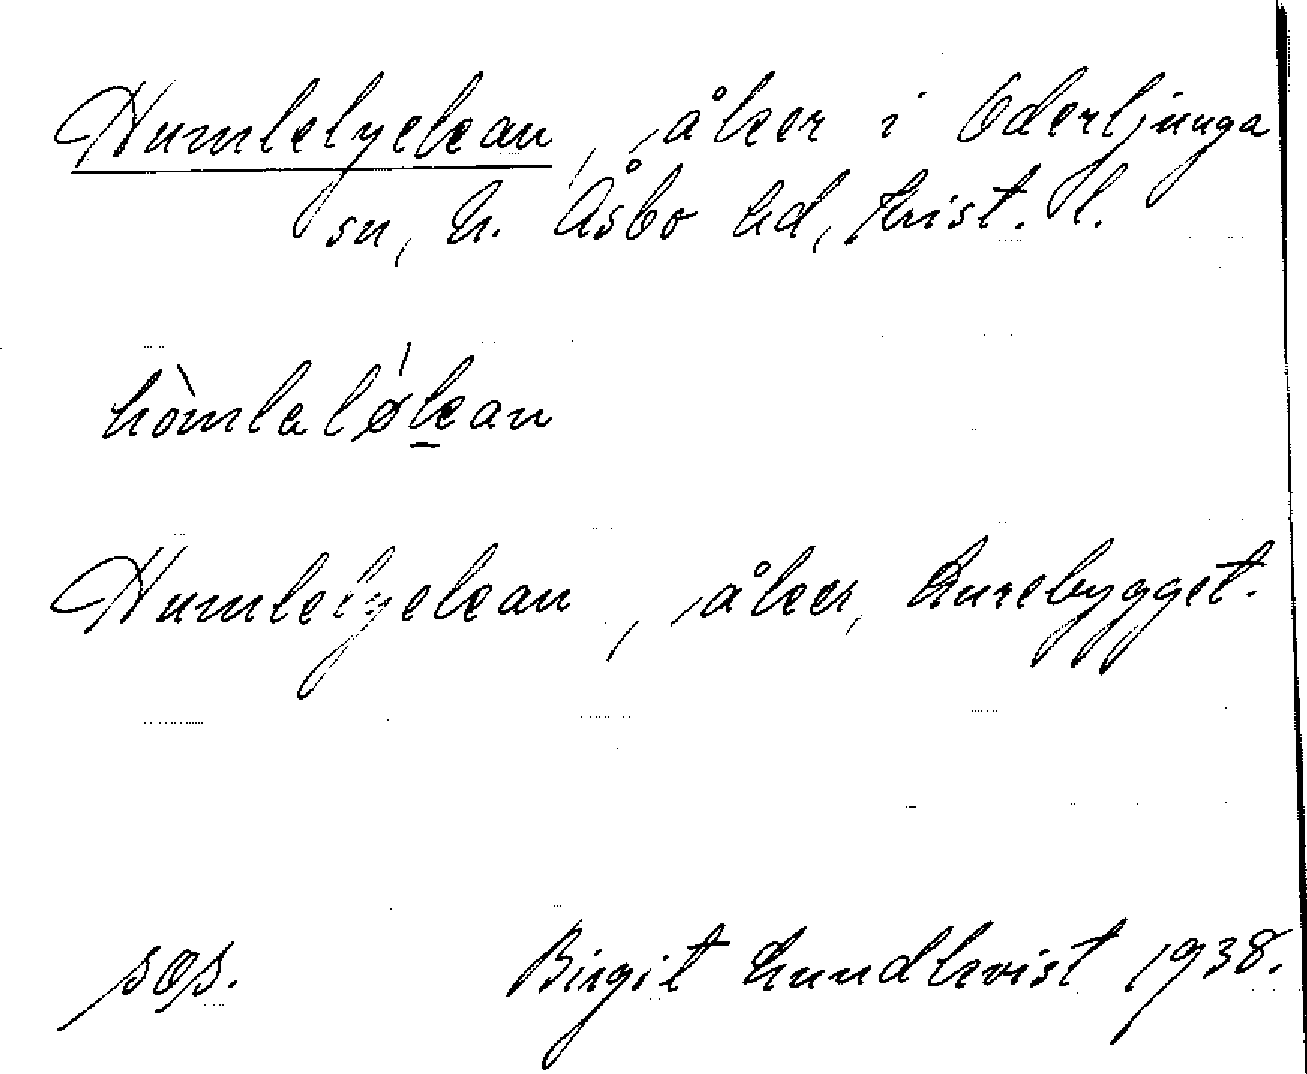 Humlelyckan, åker i Oderljunga
sn, N. Åsbo hd, Krist. l.
hòmlaløkan
Humlelyckan, åker, Lurebygget.
sǫs. Birgit Lundkvist 1938.